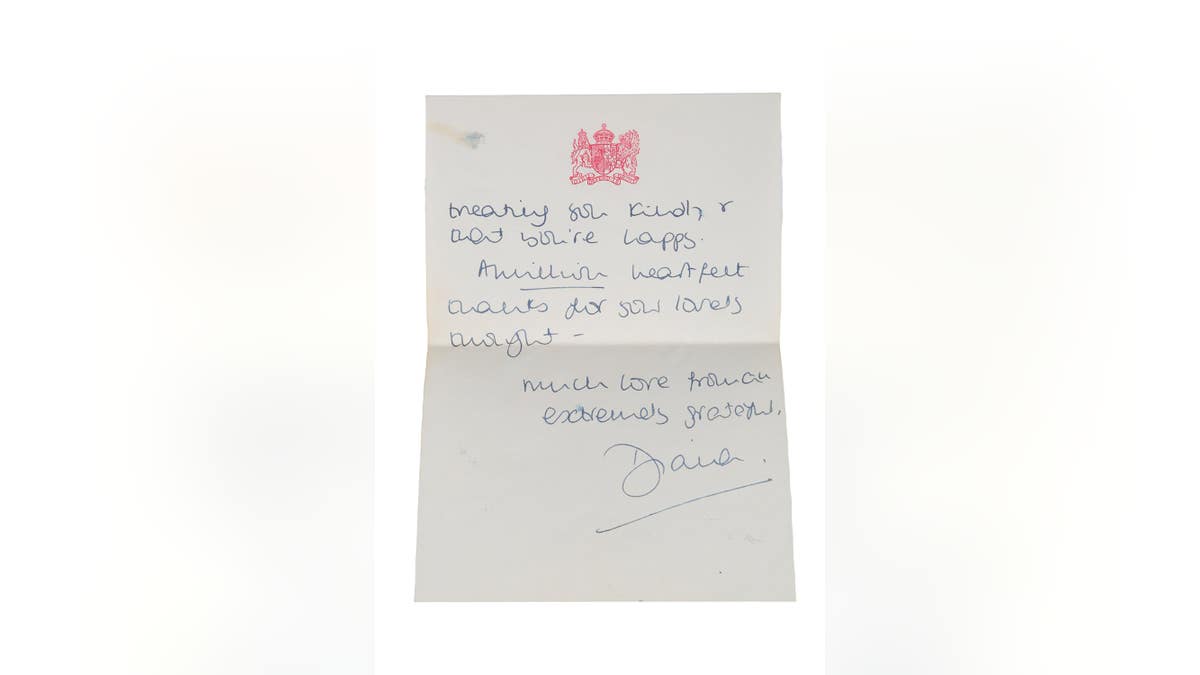 treating you kindly &
that you're happy.
A million heartfelt
thanks for your lovely
thought -
much love from an
extremely grateful,
Diana.